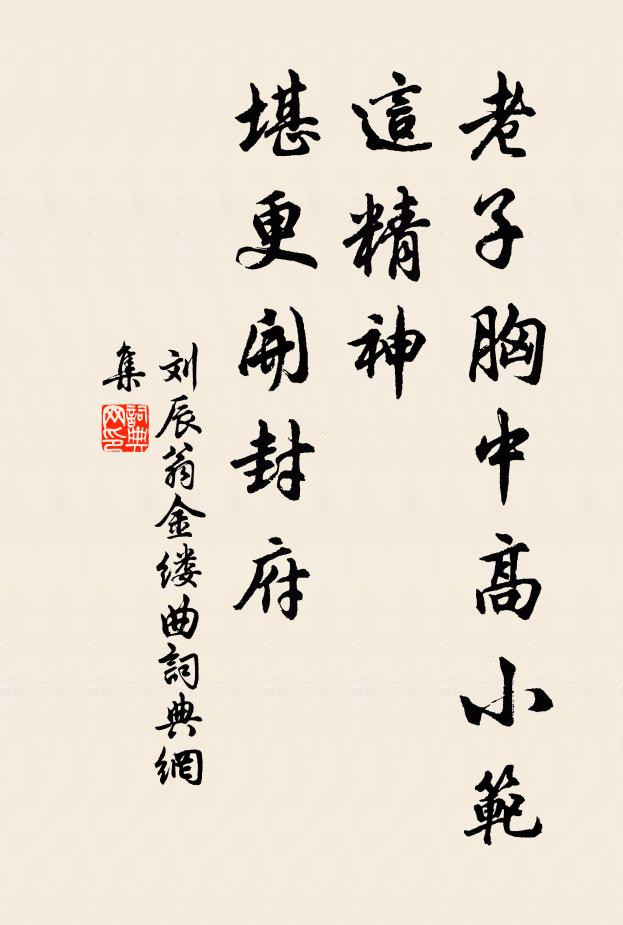 老子胸中高小範
這精神
堪更開封府
刘辰翁金缕曲詞典網
集
詞典网印